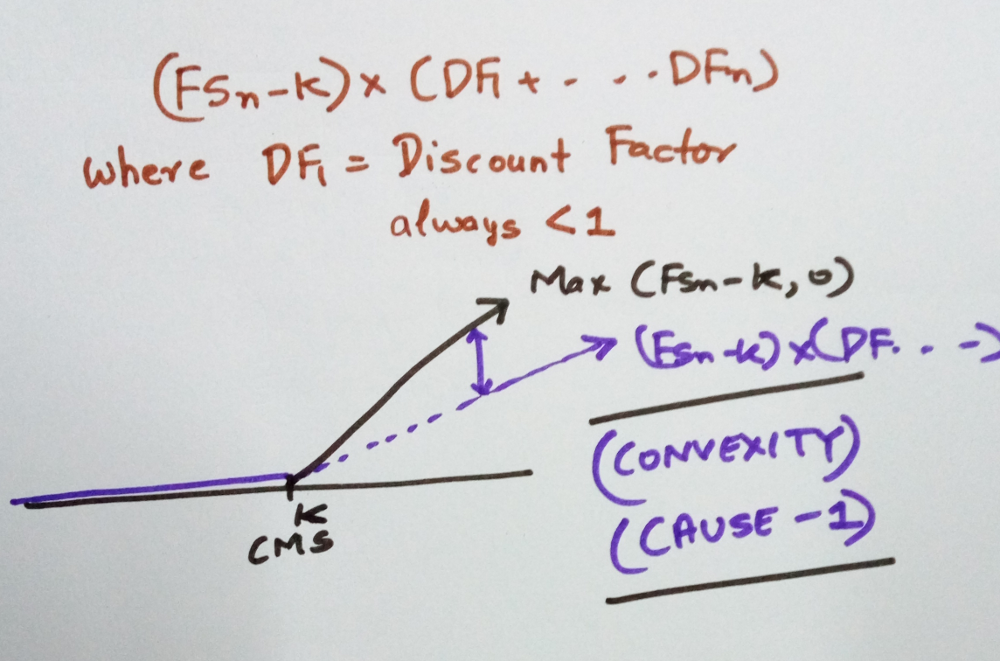 (FSn-K) x (DF1 + - - .. DFn)
where DF1 = Discount Factor
always < 1
Max (FSn-K, 0)
(FSn-K) x (DF. . -)
(CONVEXITY)
(CAUSE -1)
K
CMS